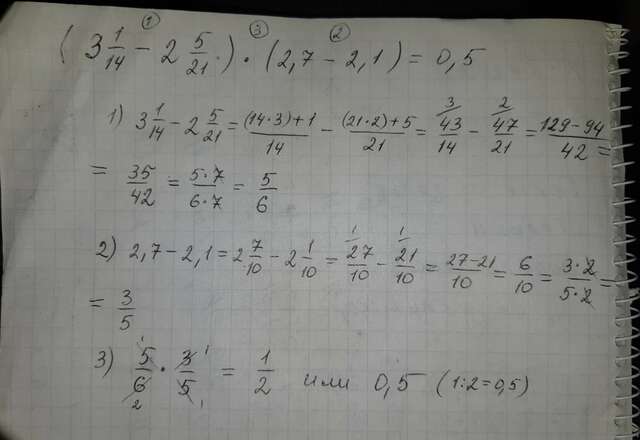 (3 1/14 - 2 5/21) · (2,7 - 2,1) = 0,5
① ③ ②
1) 3 1/14 - 2 5/21 = (14·3)+1/14 - (21·2)+5/21 = 3/43/14 - 2/47/21 = 129-94/42 =
= 35/42 = 5·7/6·7 = 5/6
2) 2,7 - 2,1 = 2 7/10 - 2 1/10 = 1/27/10 - 1/21/10 = 27-21/10 = 6/10 = 3·2/5·2 =
= 3/5
3) 5/6 · 3/5 = 1/2 или 0,5 (1:2=0,5)